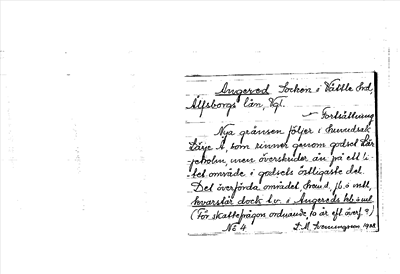 Angered Socken i Vättle hd,
Älfsborgs län, Vgl.
— Fortsättning
Nya gränsen följer i hufvudsak
Lärje Å, som rinner genom godset Lär-
jeholm, men överskrider ån på ett li-
tet område i godsets östligaste del.
Det överförda området, , ½ mtl,
kvarstår dock t.v. i Angereds hd.
(För skattefrågon ordnande, 10 år eft. överf.?)
No 4. 1908